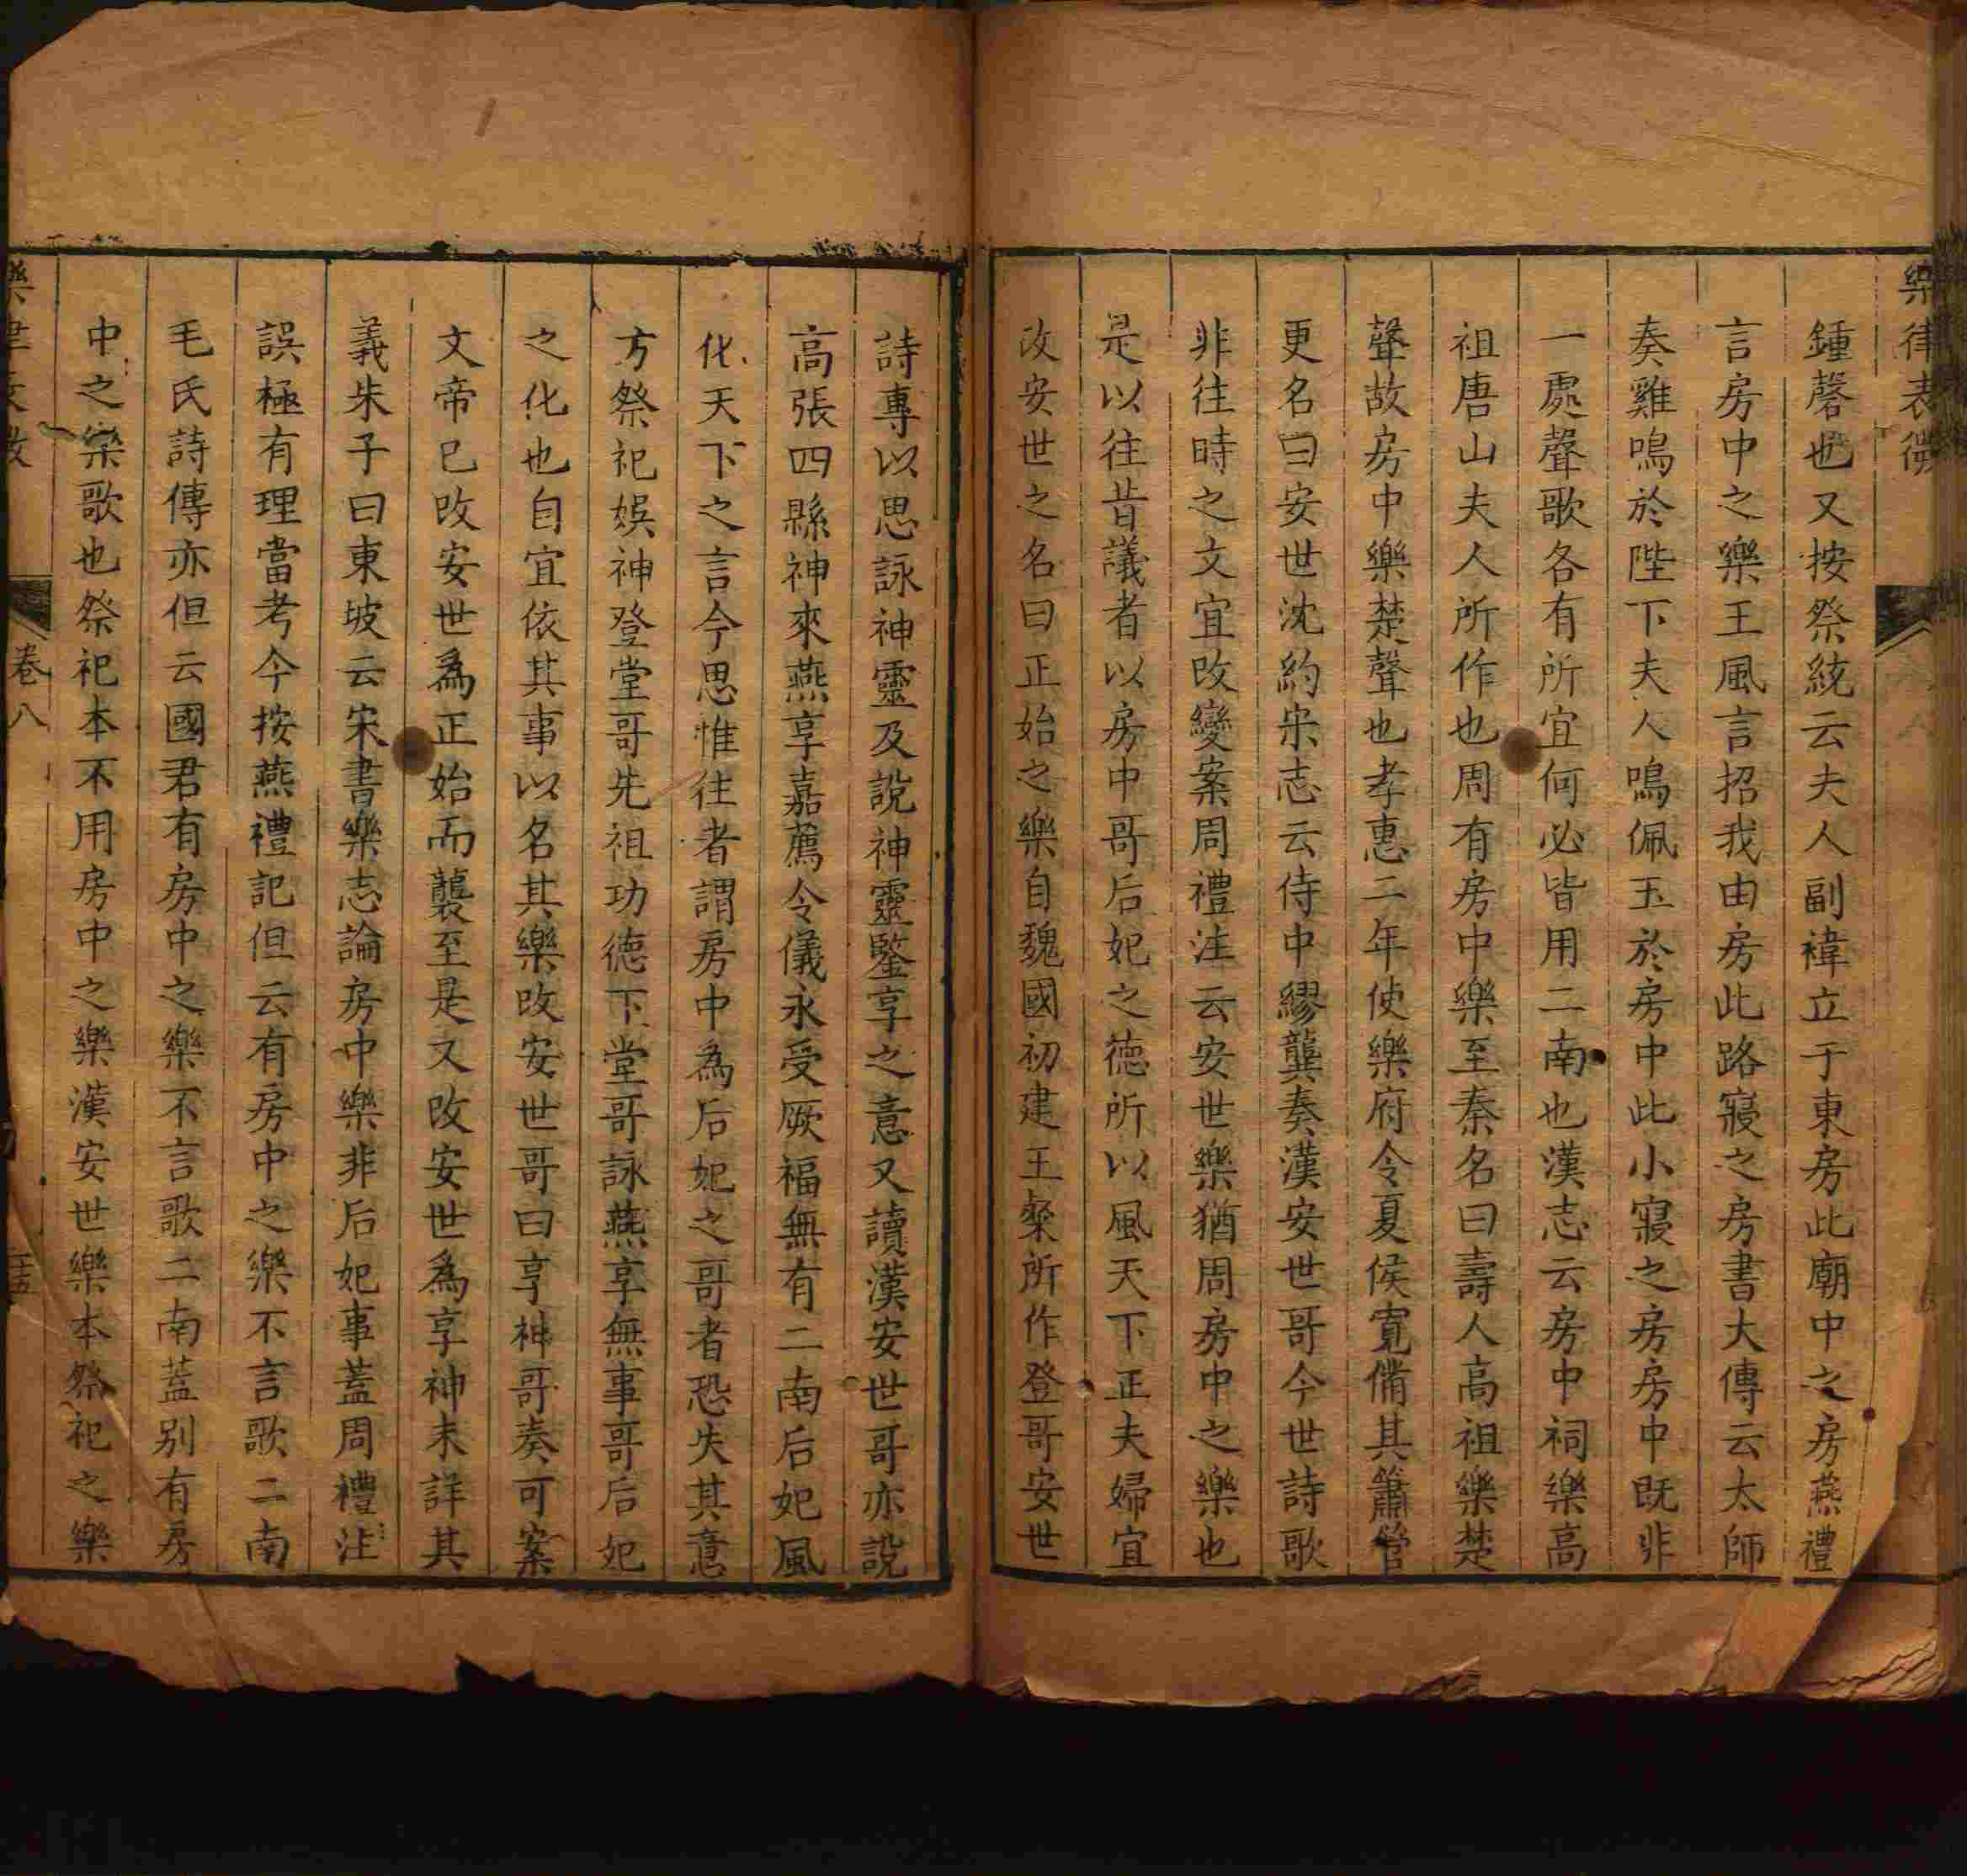 樂律表微
鍾磬也又按祭統云夫人副褘立于東房此廟中之房燕禮
言房中之樂王風言招我由房此路寢之房書大傳云太師
奏雞鳴於陛下夫人鳴佩玉於房中此小寢之房房中既非
一處聲歌各有所宜何必皆用二南也漢志云房中祠樂高
祖唐山夫人所作也周有房中樂至秦名曰壽人高祖樂楚
聲故房中樂楚聲也孝惠二年使樂府令夏侯寬備其簫管
更名曰安世沈約宋志云侍中繆龔奏漢安世哥今世詩歌
非往時之文宜改變案周禮注云安世樂猶周房中之樂也
是以往昔議者以房中哥后妃之德所以風天下正夫婦宜
改安世之名曰正始之樂自魏國初建王粲所作登哥安世
詩專以思詠神靈及說神靈鑒享之意又讀漢安世哥亦說
高張四縣神來燕享嘉薦令儀永受厥福無有二南后妃風
化天下之言今思惟往者謂房中為后妃之哥者恐失其意
方祭祀娛神登堂哥先祖功德下堂哥詠燕享無事哥后妃
之化也自宜依其事以名其樂改安世哥曰享神哥奏可案
文帝已改安世為正始而襲至是又改安世為享神未詳其
義朱子曰東坡云宋書樂志論房中樂非后妃事蓋周禮注
誤極有理當考今按燕禮記但云有房中之樂不言歌二南
毛氏詩傳亦但云國君有房中之樂不言歌二南蓋别有房
中之樂歌也祭祀本不用房中之樂漢安世樂本祭祀之樂
卷八